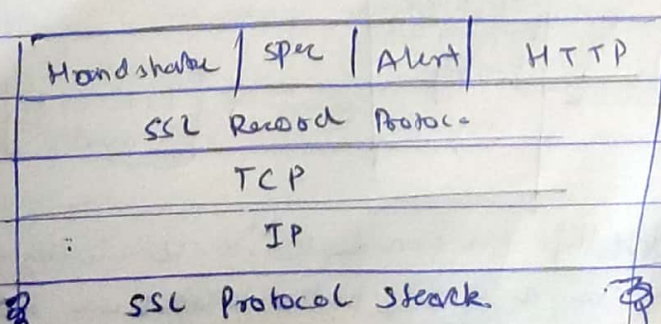 Handshake | Spec | Alert | HTTP
SSL Record Protoco
TCP
IP
SSL Protocol Stack